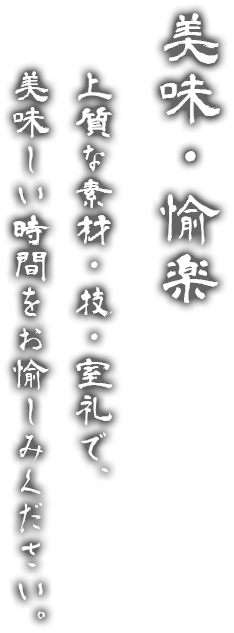 美味・愉楽
上質な素材・技・室礼で、
美味しい時間をお愉しみください。